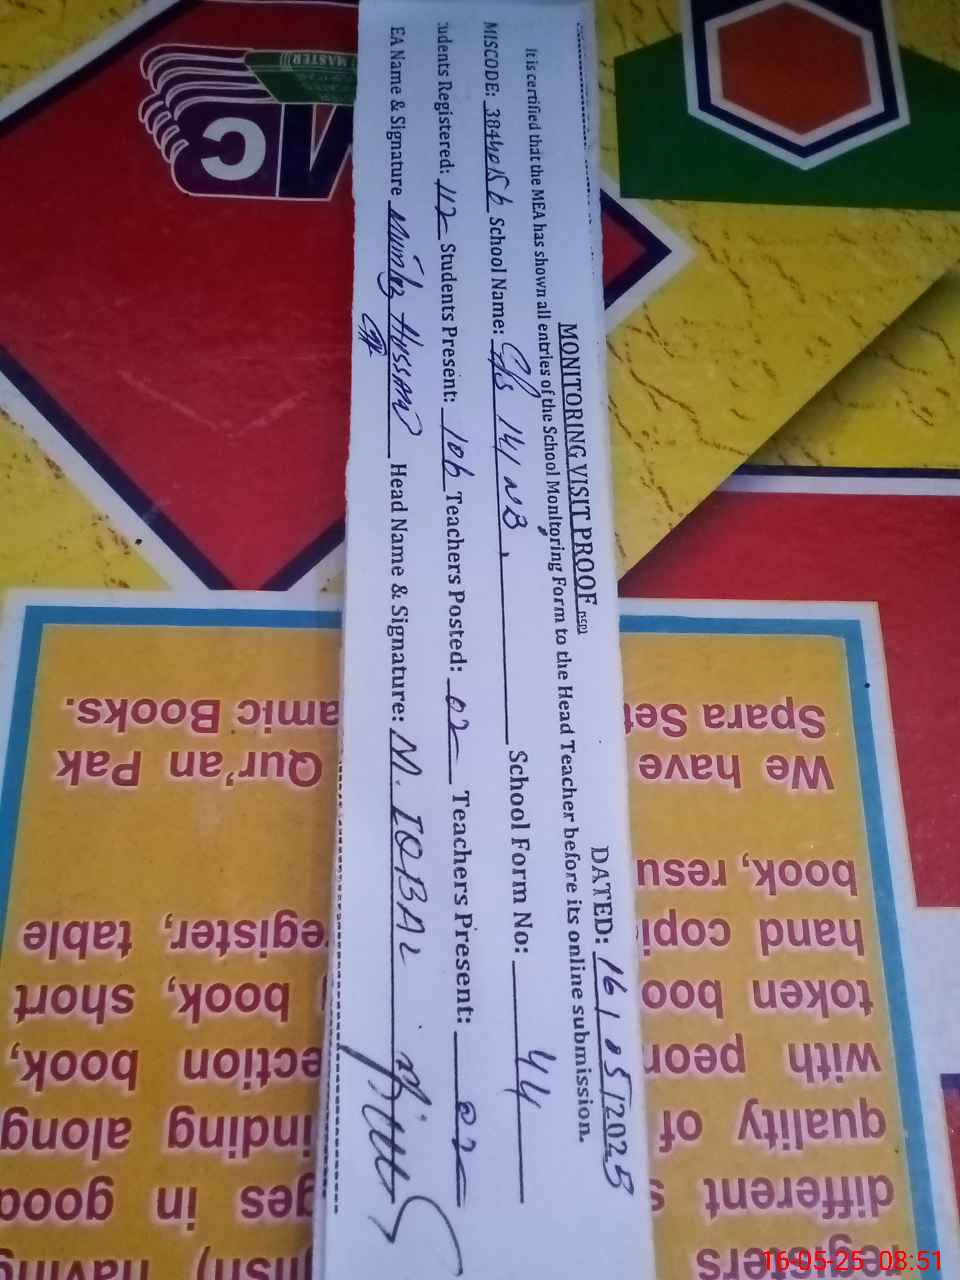 MONITORING VISIT PROOF
DATED: 16/05/2025
It is certified that the MEA has shown all entries of the School Monitoring Form to the Head Teacher before its online submission.
MISCODE: School Name: 141 NB School Form No: 44
udents Registered: 112 Students Present: 106 Teachers Posted: 02 Teachers Present: 02
EA Name & Signature Hussain Head Name & Signature: M. IQBAL
MASTER
C
We have Qur'an Pak
Spara Set amic Books.
egisters lish) having
different s ges in good
quality of inding along
with peon ection book,
token boo book, short
hand copi egister, table
book, resu
16-05-25 08:51